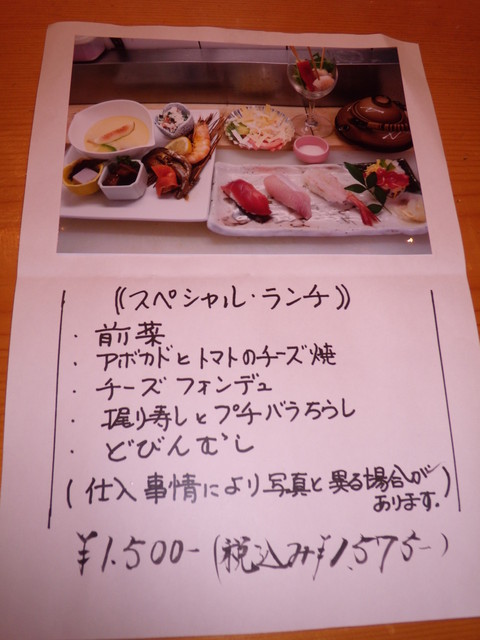 ((スペシャル・ランチ))
・前菜
・アボカドとトマトのチーズ焼
・チーズ フォンデュ
・握り寿しとプチバラちらし
・どびんむし
(仕入事情により写真と異る場合が
あります。)
¥1.500-(税込み¥1.575-)